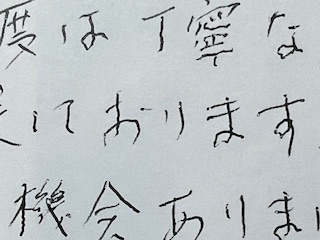 度は丁寧な
しております
機会ありまし